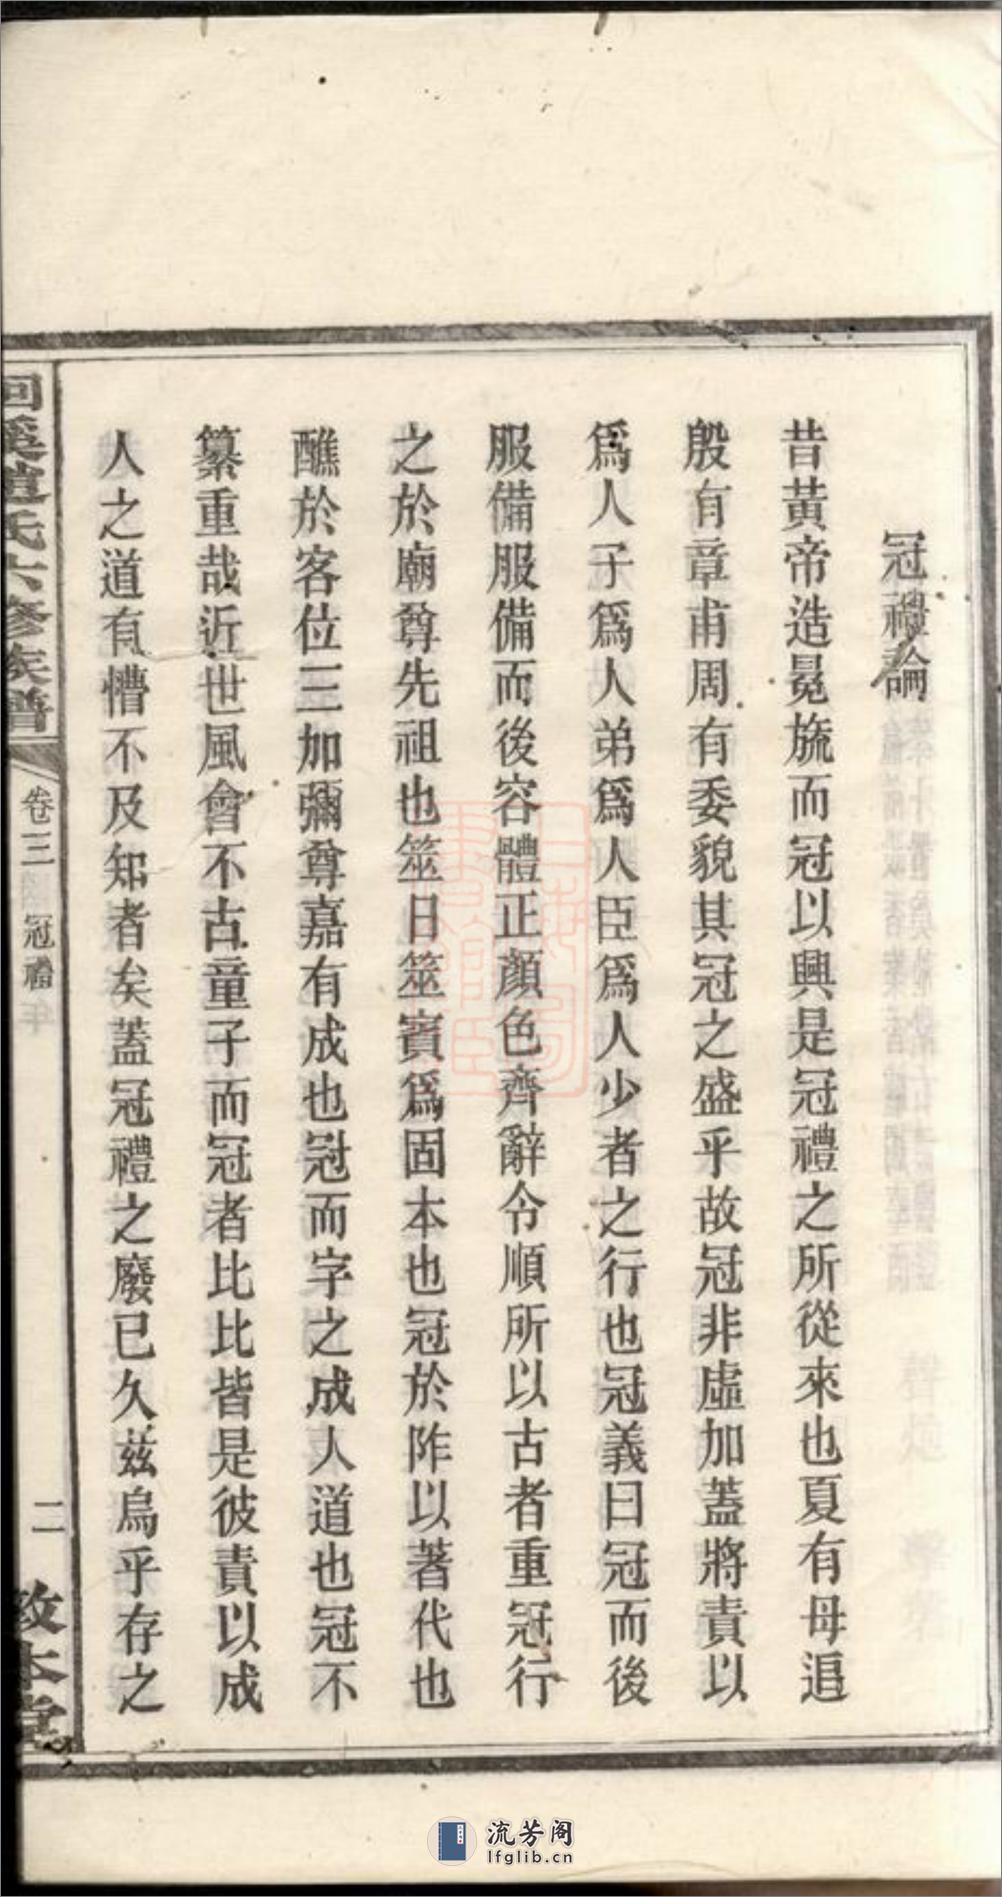 冠禮論
昔黃帝造冕旒而冠以興是冠禮之所從來也夏有母追
殷有章甫周有委貌其冠之盛乎故冠非虛加蓋將責以
爲人子爲人弟爲人臣爲人少者之行也冠義曰冠而後
服備服備而後容體正顏色齊辭令順所以古者重冠行
之於廟尊先祖也筮日筮賓爲固本也冠於阼以著代也
醮於客位三加彌尊嘉有成也冠而字之成人道也冠不
綦重哉近世風會不古童子而冠者比比皆是彼責以成
人之道有懵不及知者矣蓋冠禮之廢已久茲烏乎存之
回溪趙氏六修族譜
卷三
冠禮
二
敦本堂
流芳阁
lfglib.cn